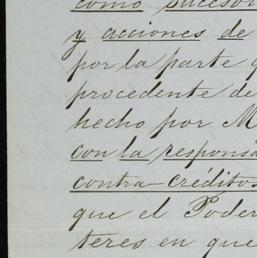 como sucesor
y acciones de
por la parte q
procedente de
hecho por M
con la responsa
contra-créditos
que el Poder
teres en que